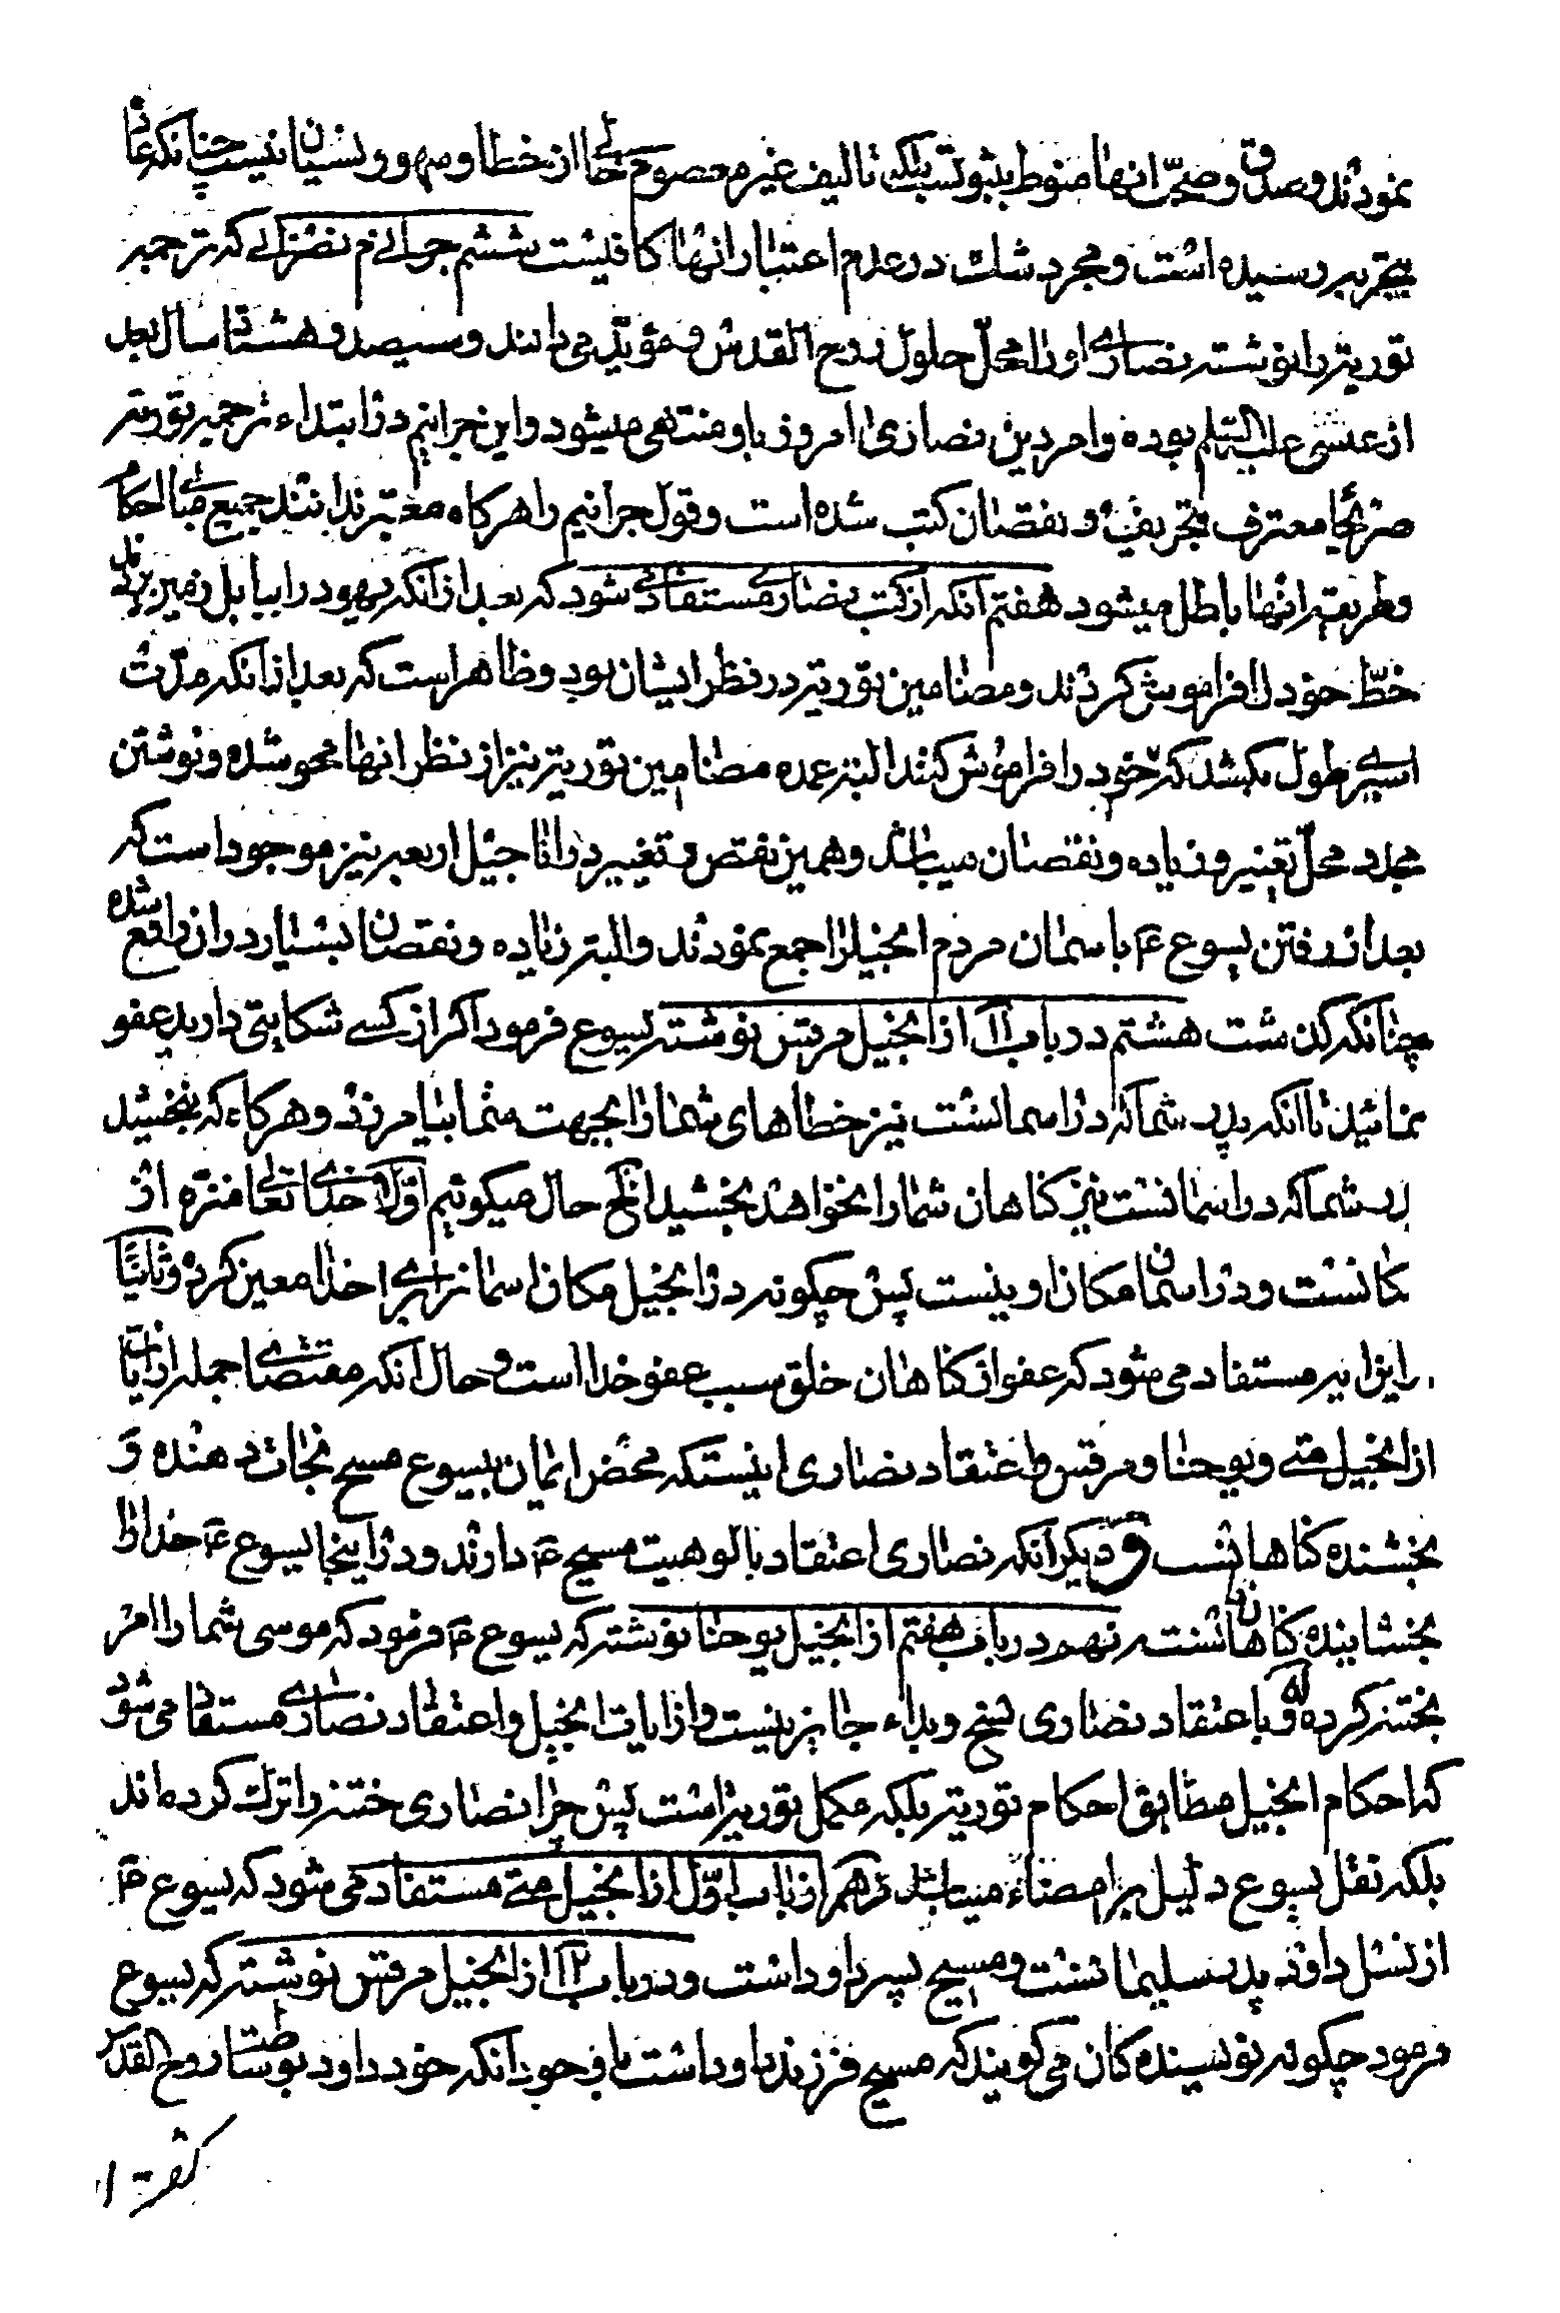 نمودند و صدق و صحّت انها منوط بثبوتست بلکه تالیف غیر معصوم خالی از خطا و سهو و نسیان نیست چنانکه
بتجربه رسیده است و مجرد شک در عدم اعتبار انها کافیست ششم جرانیم نصرانی که ترجمه
توریة را نوشته نصاری او را محلّ حلول روح القدس و مؤیّد می دانند و سیصد و هشتاد سال بعد
از عیسی علیه السلم بوده و امر دین نصاری امروز باو منتهی میشود و این جرانیم در ابتداء ترجمه توریة
صریحا معترف بتحریف و نقصان کتب شده است و قول جرانیم را هرگاه معتبر ندانند جمیع مبانی احکام
و طریقه انها باطل میشود هفتم انکه از کتب نصاری مستفاد می شود که بعد از انکه یهود را ببابل زمین بردند
خطّ خود را فراموش کردند و مضامین توریة در نظر ایشان بود و ظاهر است که بعد از انکه مدّت
اسیری طول بکشد که خود را فراموش کنند البته عمده مضامین توریة نیز از نظر انها محو شده و نوشتن
مجدد محلّ تغییر و زیاده و نقصان میباشد و همین نقص و تغییر در اناجیل اربعه نیز موجود است که
بعد از رفتن یسوع ع باسمان مردم انجیل را جمع نمودند و البته زیاده و نقصان بسیار در ان واقع شده
چنانکه گذشت هشتم در باب ۱۱ از انجیل مرقس نوشته یسوع فرمود اکر از کسی شکایتی دارید عفو
نمائید تا انکه پدر شما که در اسمانست نیز خطاهای شما را بجهت شما بیامرزد و هرگاه که نبخشید
پدر شما که در اسمانست نیز کناهان شما را نخواهد بخشید الخ حال میکوئیم اوّلا خدای تعالی منزّه از
مکانست و در اسمان مکان او نیست پس چکونه در انجیل مکان اسمان را برای خدا معین کرده و ثانیًا
از این ایه مستفاد می شود که عفو از کناهان خلق سبب عفو خدا است و حال انکه مقتضای جمله از ایات
از انجیل متی و یوحنا و مرقس و اعتقاد نصاری اینستکه محض ایمان بیسوع مسیح نجات دهنده و
بخشنده کناهانست و دیکر انکه نصاری اعتقاد بالوهیت مسیح ع دارند و در اینجا یسوع ع خدا را
بخشاینده کناهانست نهم در باب هفتم از انجیل یوحنا نوشته که یسوع ع فرمود که موسی شما را امر
بختنه کرده و باعتقاد نصاری نسخ و بداء جایز نیست و از ایات انجیل و اعتقاد نصاری مستفاد می شود
که احکام انجیل مطابق احکام توریة بلکه مکمل توریة است پس چرا نصاری ختنه را ترک کرده اند
بلکه نقل یسوع دلیل بر امضاء میباشد دهم از باب اوّل از انجیل متی مستفاد می شود که یسوع ع
از نسل داود پدر سلیمانست و مسیح پسر داود است و در باب ۱۲ از انجیل مرقس نوشته که یسوع
فرمود چکونه نویسنده کان می کویند که مسیح فرزند داود است انکه خود داود بوساطت روح القدس
کفت